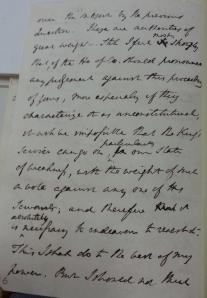 over the
direction. These are authorities of
great weight. Still I feel most strongly
that, if the H. of Co. should pronounce
any judgement against this proceeding
of yours, more especially if they
characterize it as unconstitutional,
it will be impossible that the King's
Service can go on, particularly in our State
of weakness, with the weight of such
a vote against any one of His
Servants, and therefore that it
absolutely
is necessary to endeavour to resist it.
This I shall do to the best of my
power. But I should not
6